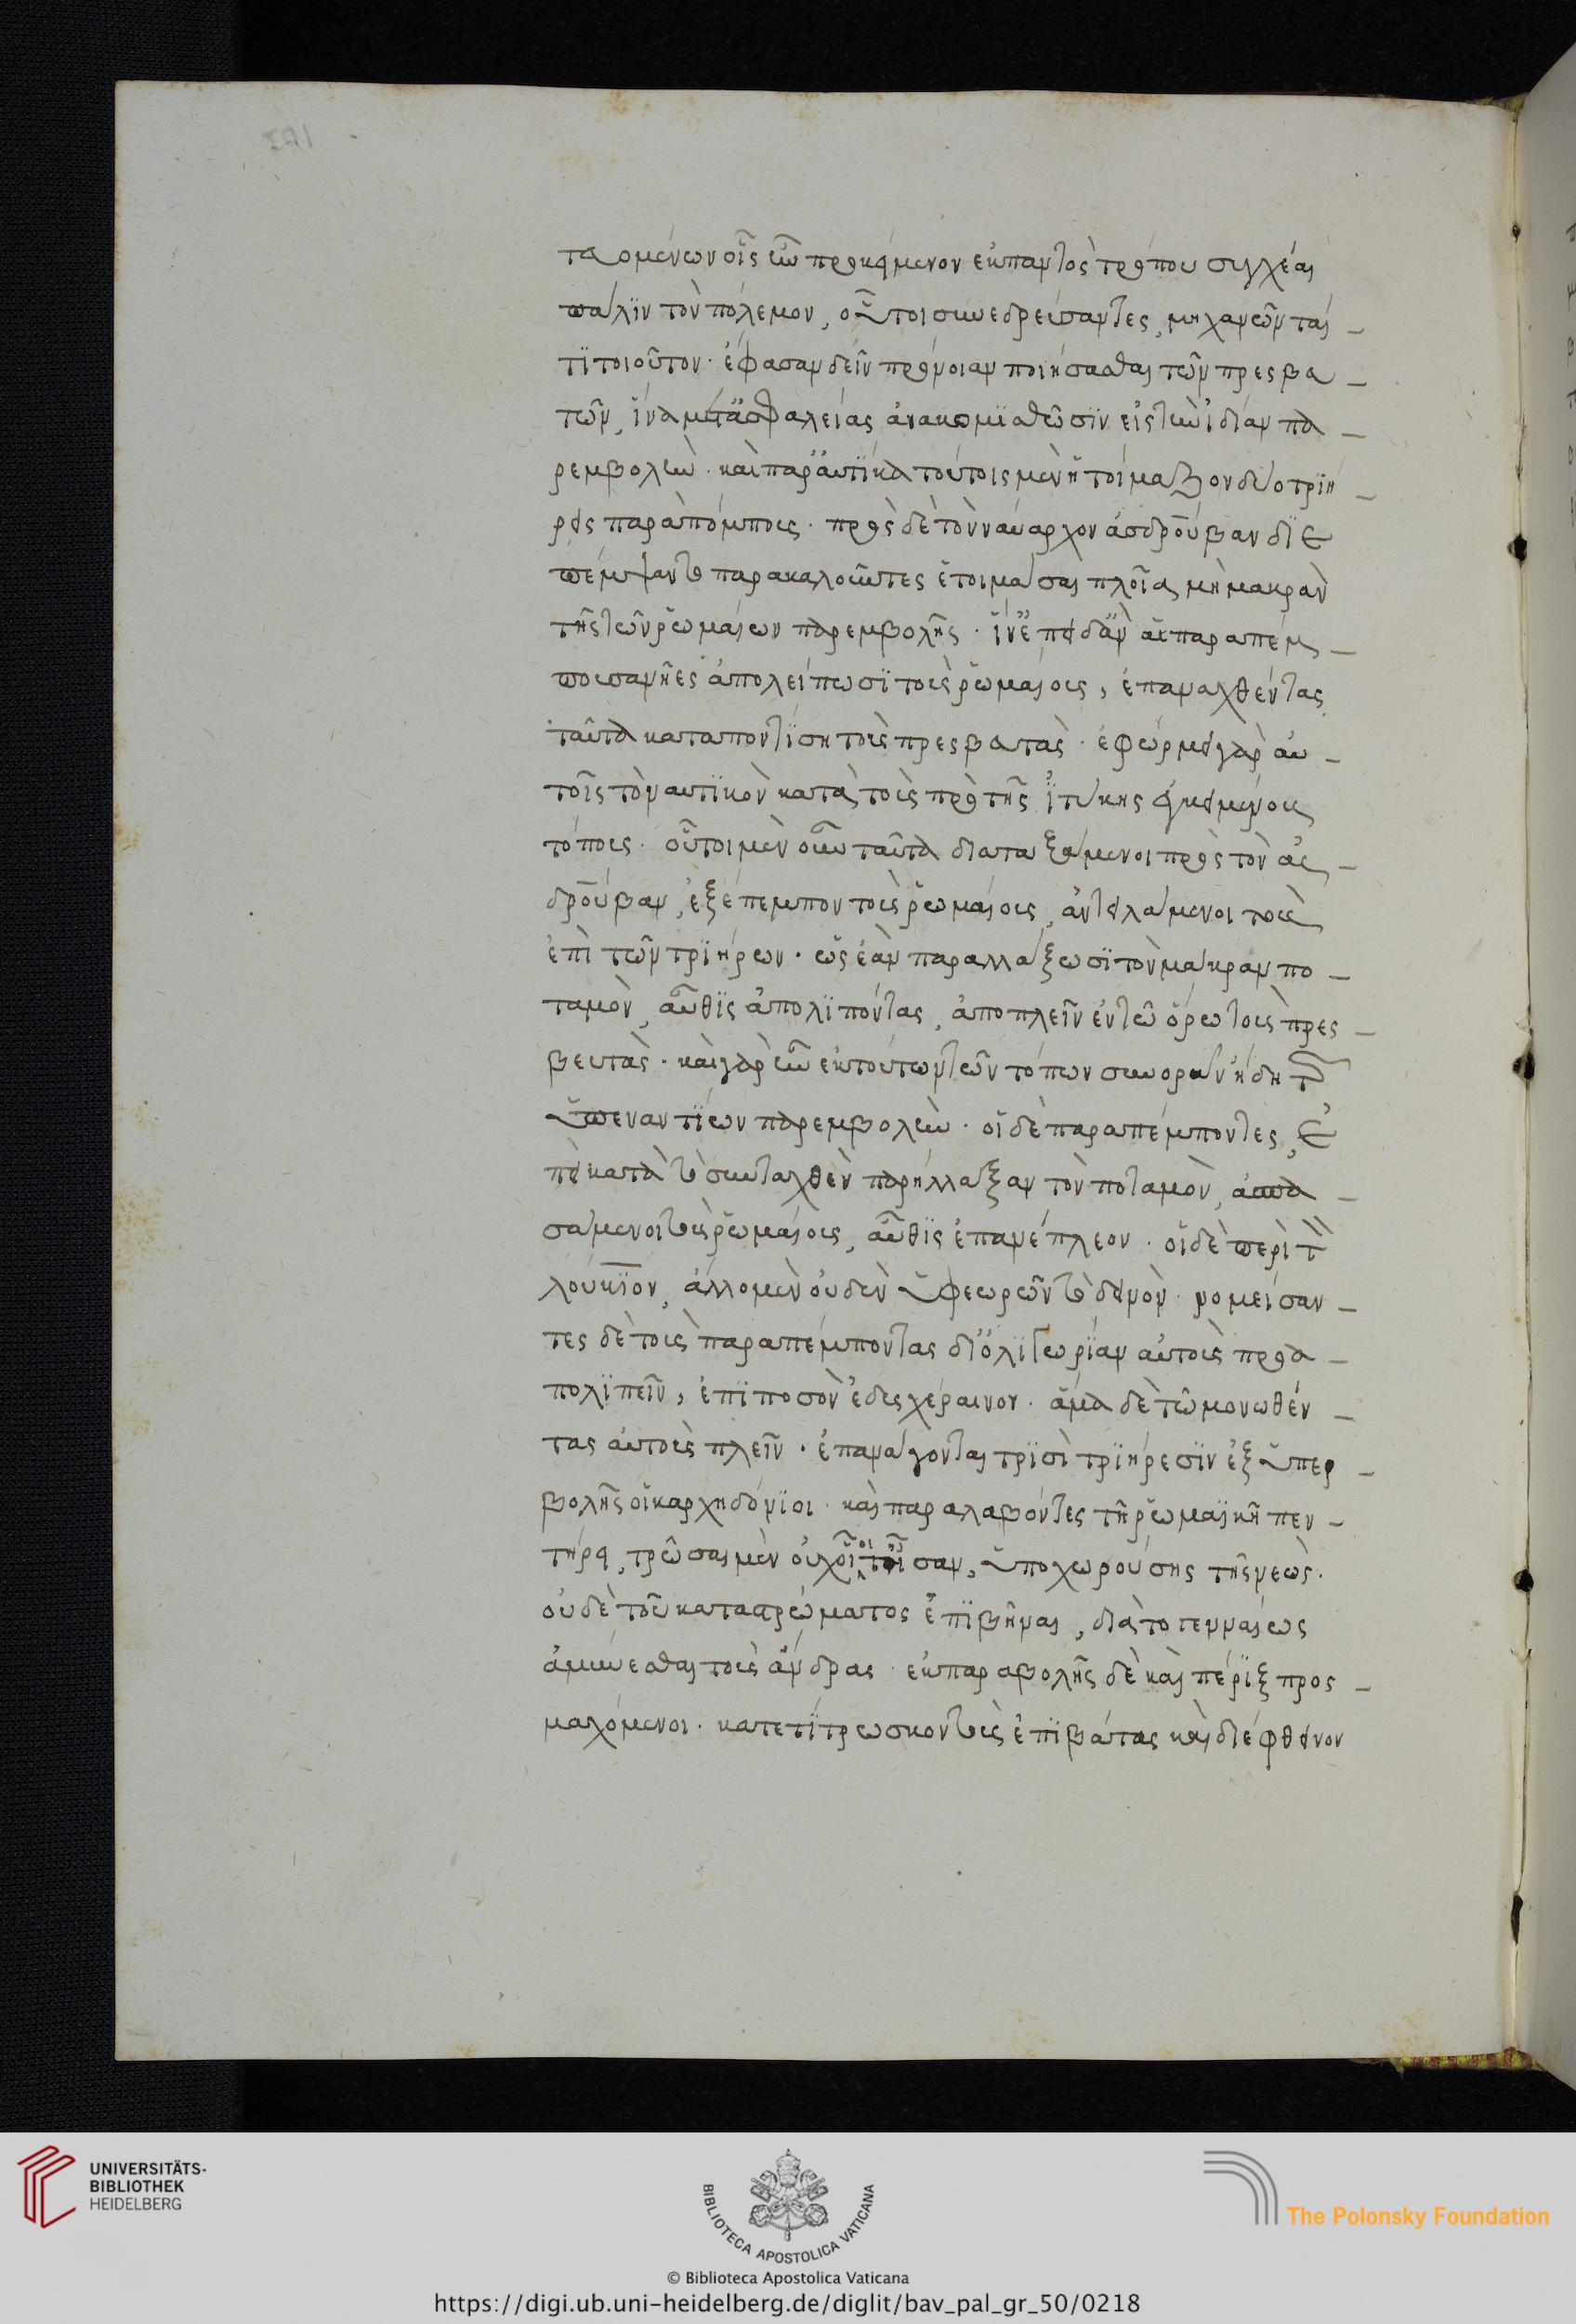 ταλομένων οἷς ἦν προκείμενον ἐκ παντὸς τρόπου συγχέαι
πάλιν τὸν πόλεμον, οὗτοι συνεδρεύσαντες, μηχανῶνται
τι τοιοῦτον· ἔφασαν δεῖν πρόνοιαν ποιήσασθαι τῶν πρεσβευ
τῶν, ἵνα μετ' ἀσφαλείας ἀνακομισθῶσιν εἰς τὴν ἰδίαν πα
ρεμβολήν· καὶ παραυτίκα τούτοις μὲν ἡτοίμαζον δύο τριή
ρεις παραπόμπους· πρὸς δὲ τὸν ναύαρχον ἀσδρούβαν διε
πέμψαντο παρακαλοῦντες ἑτοιμάσαι πλοῖα μὴ μακρὰν
τῆς τῶν ῥωμαίων παρεμβολῆς· ἵν' ἐπειδὰν αἱ παραπέμ
πουσαι νῆες ἀπολείπωσι τοὺς ῥωμαίους, ἐπαναχθέντας
ταῦτα καταποντίση τοὺς πρεσβευτάς· ἐφώρμει γὰρ αὐ
τοῖς τὸ ναυτικὸν κατὰ τοὺς πρὸ τῆς ἰτύκης ἐκκειμένους
τόπους· οὗτοι μὲν οὖν ταῦτα διαταξάμενοι πρὸς τὸν ἀσ
δρούβαν, ἐξέπεμπον τοὺς ῥωμαίους, ἐντειλάμενοι τοῖς
ἐπὶ τῶν τριήρων· ὡς ἐὰν παραλλάξωσι τὸν μάκραν πο
ταμὸν, αὖθις ἀπολιπόντας, ἀποπλεῖν ἐν τῶ πόρω τοὺς πρεσ
βευτάς· καὶ γὰρ ἦν ἐκ τούτων τῶν τόπων συνορᾶν ἤδη τὴν
ὑπεναντίων παρεμβολήν· οἱ δὲ παραπέμποντες, ἐ
πεὶ κατὰ τὸ συνταχθὲν παρήλλαξαν τὸν ποταμὸν, ἀσπα
σάμενοι τοὺς ῥωμαίους, αὖθις ἐπανέπλεον· οἱ δὲ περὶ τὸν
λούκιον, ἄλλο μὲν οὐδὲν ὑφεωρῶντο δεινόν· νομίσαν
τες δὲ τοὺς παραπέμποντας δι' ὀλιγωρίαν αὐτοὺς προα
πολιπεῖν, ἐπὶ ποσὸν ἐδυσχέραινον· ἅμα δὲ τῶ μονωθέν
τας αὐτοὺς πλεῖν· ἐπανάγονται τρισὶ τριήρεσιν ἐξ ὑπερ
βολῆς οἱ καρχηδόνιοι· καὶ παραλαβόντες τῆ ῥωμαϊκῆ πεν
τήρει, τρῶσαι μὲν οὐχ οἷοί τ' ἦσαν, ὑποχωρούσης τῆς νεώς·
οὐδὲ τοῦ καταστρώματος ἐπιβῆναι, διὰ τὸ γενναίως
ἀμύνεσθαι τοὺς ἄνδρας· ἐκ παραβολῆς δὲ καὶ πέριξ προσ
μαχόμενοι· κατετίτρωσκον τοὺς ἐπιβάτας καὶ διέφθειρον
UNIVERSITÄTS-
BIBLIOTHEK
HEIDELBERG
BIBLIOTECA APOSTOLICA VATICANA
The Polonsky Foundation
© Biblioteca Apostolica Vaticana
https://digi.ub.uni-heidelberg.de/diglit/bav_pal_gr_50/0218